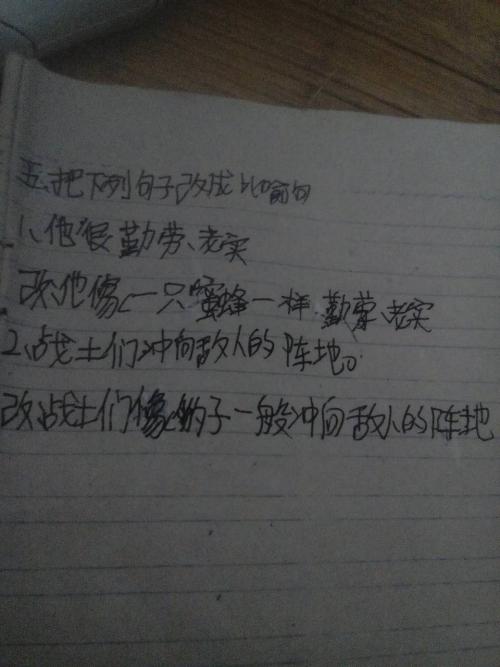 五、把下列句子改成比喻句
1、他很勤劳、老实
改、他像一只蜜蜂一样勤劳、老实
2、战士们冲向敌人的阵地。
改、战士们像豹子一般冲向敌人的阵地